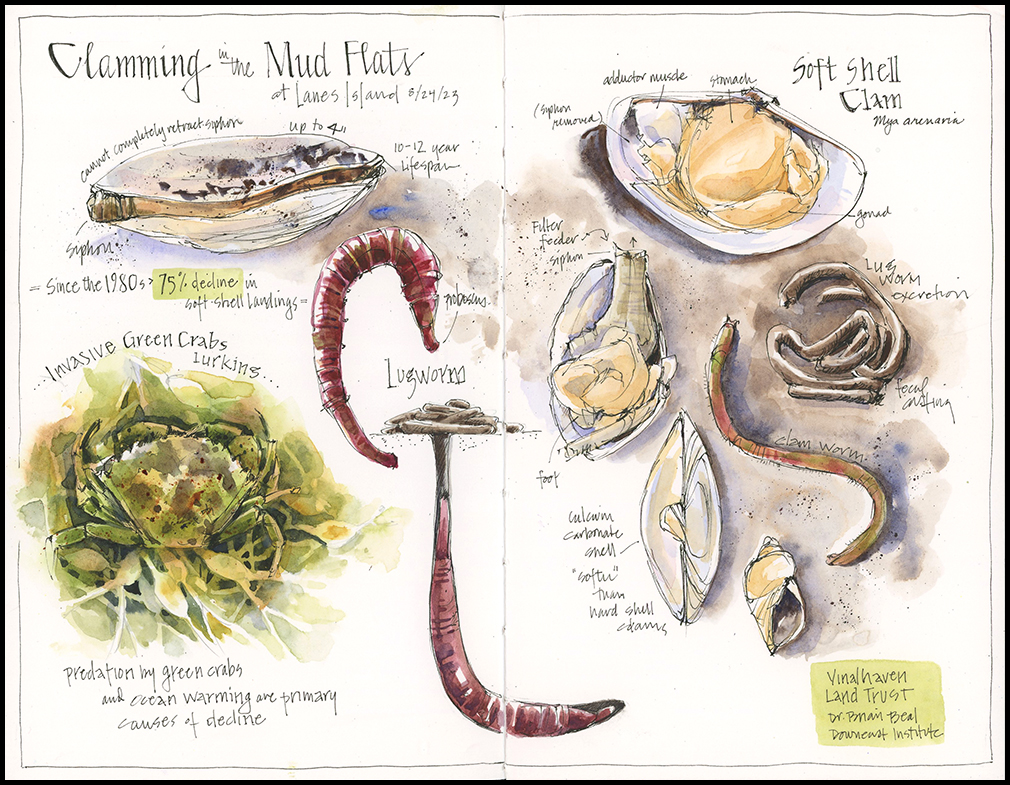 Clamming in the Mud Flats
at Lanes Island 8/24/23
cannot completely retract siphon
up to 4"
10-12 year
lifespan
siphon
= Since the 1980s > 75% decline in
soft-shell landings =
proboscus
Lugworm
...Invasive Green Crabs
lurking...
predation by green crabs
and ocean warming are primary
causes of decline
Soft Shell
Clam
Mya arenaria
adductor muscle
stomach
(siphon
removed)
gonad
Filter
feeder
siphon
foot
Lug
worm
excretion
fecal
casting
clam worm
calcium
carbonate
shell
"softer"
than
hard shell
clams
Vinalhaven
Land Trust
Dr. Brian Beal
Downeast Institute